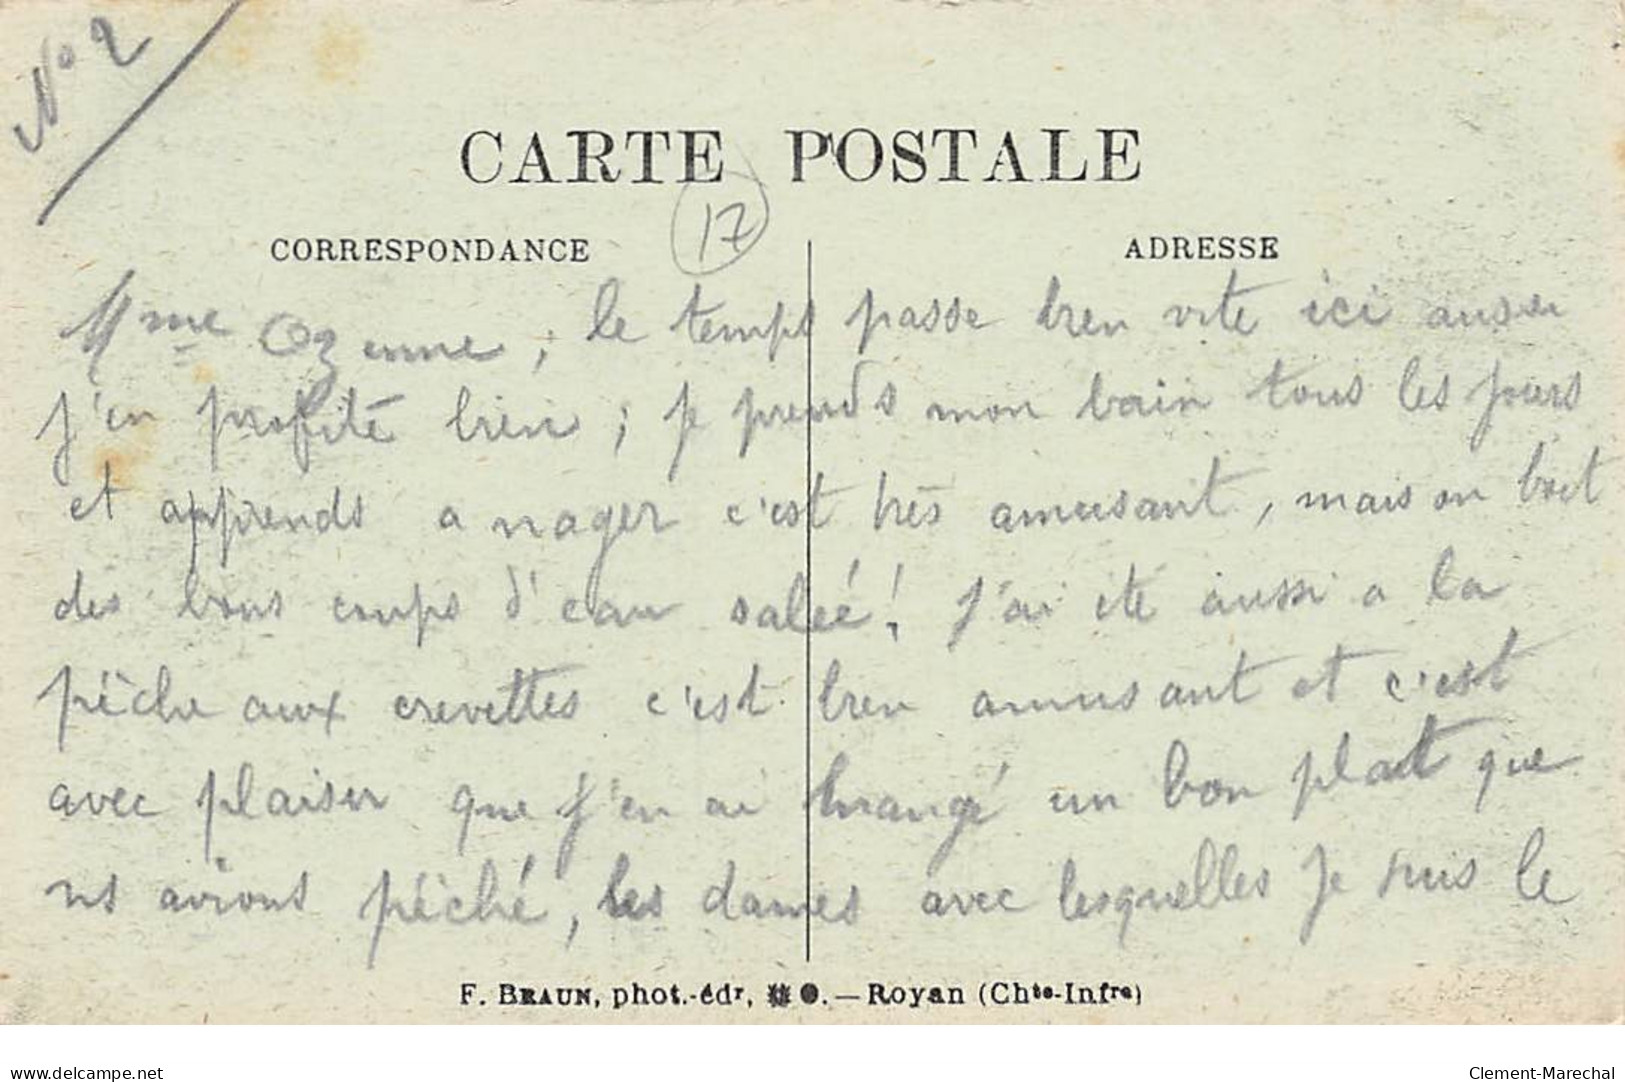 N° 2
CARTE POSTALE
17
CORRESPONDANCE
ADRESSE
Mme Ozenne, le temps passe bien vite ici aussi
j'en profite bien ; je prends mon bain tous les jours
et apprends a nager c'est très amusant, mais on boit
des bons coups d'eau saleé! J'ai eté aussi a la
pêche aux crevettes c'est bien amusant et c'est
avec plaisir que j'en ai mangé un bon plat que
ns avions pêché, les dames avec lesquelles je suis le
F. BRAUN, phot.-édr, - Royan (Chte-Infre)
delcampe.net
Clement-Marechal